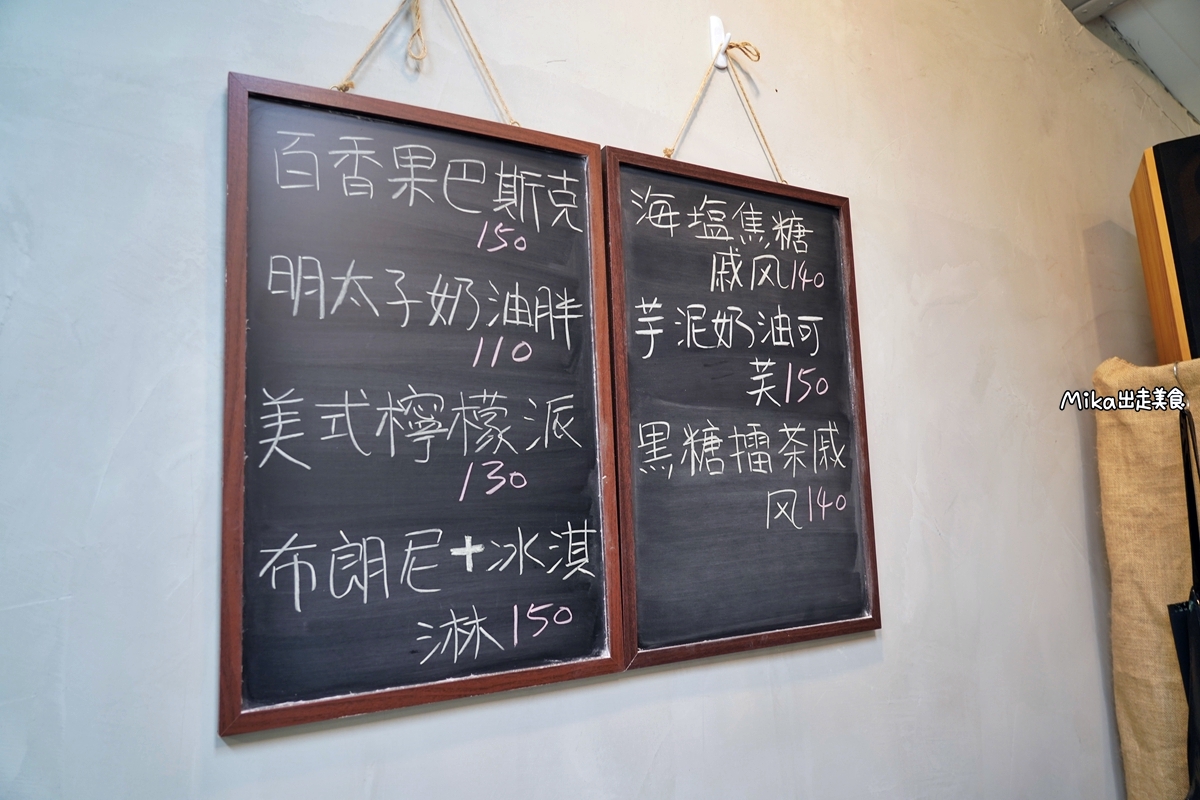 百香果巴斯克
150
明太子奶油胖
110
美式檸檬派
130
布朗尼+冰淇
淋150
海塩焦糖
戚风140
芋泥奶油可
芙150
黒糖擂茶戚
风140
Mika出走美食